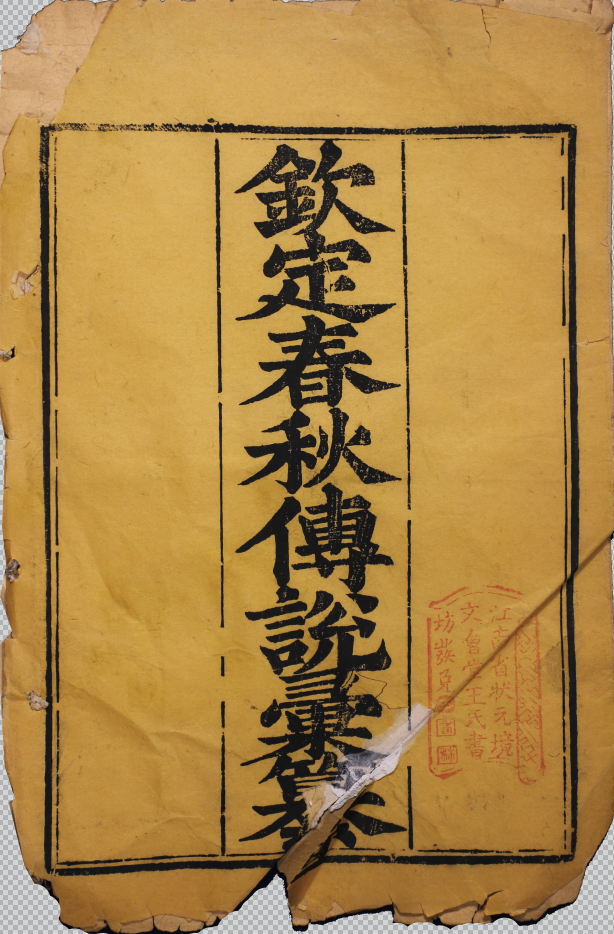 欽定春秋傳說彙纂
江南省狀元境
文會堂王氏書
坊發兌